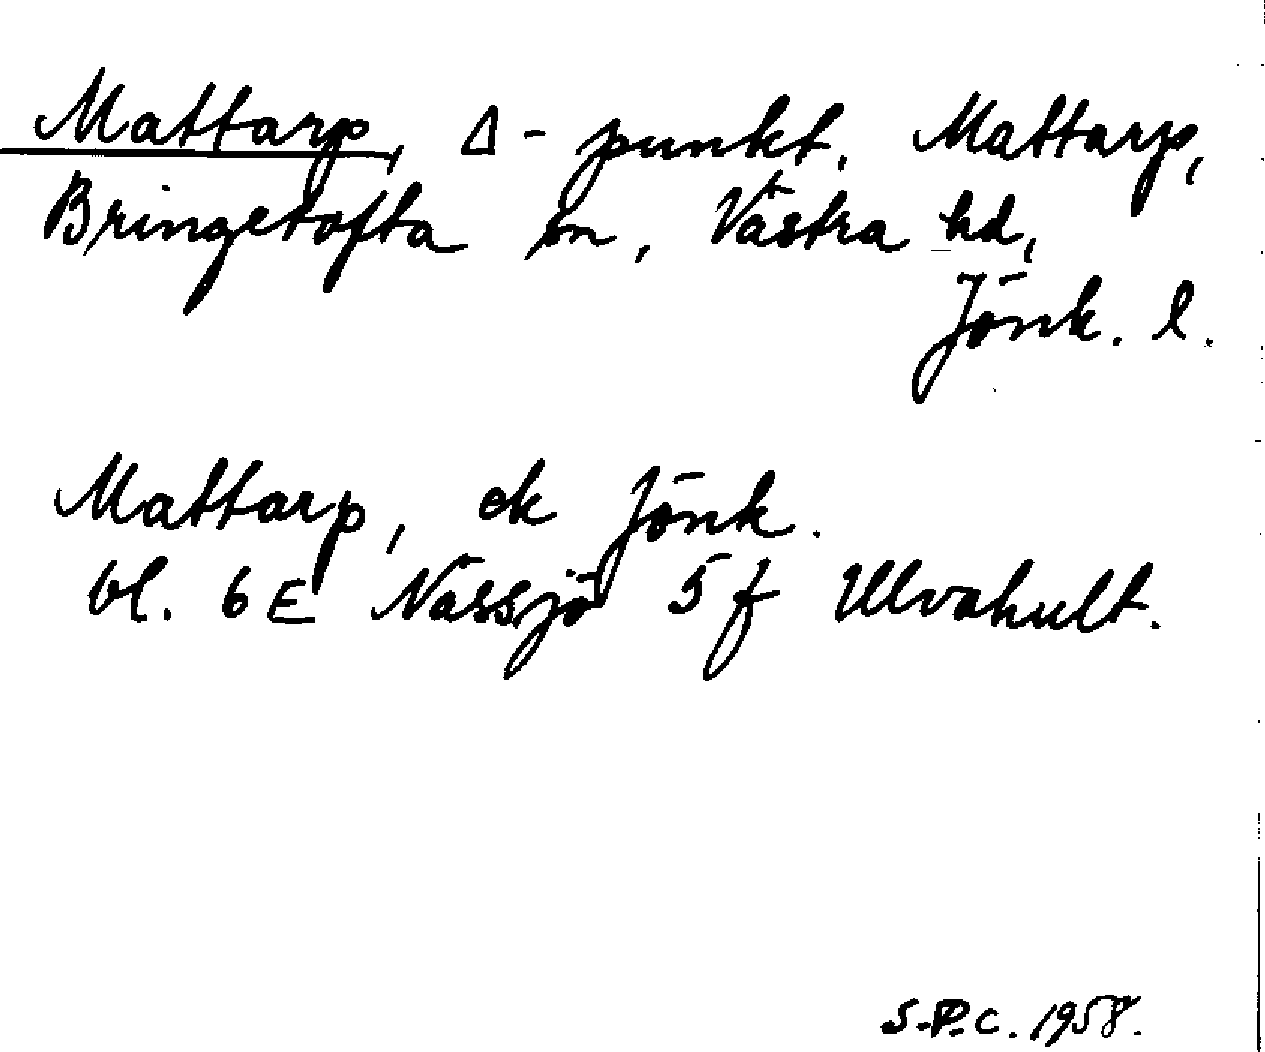 Mattarp, Δ-punkt, Mattarp,
Bringetofta sn, Västra hd,
Jönk. l.
Mattarp, ek Jönk.
bl. 6E Nässjö 5 f Ulvahult.
S.P.C. 1958.